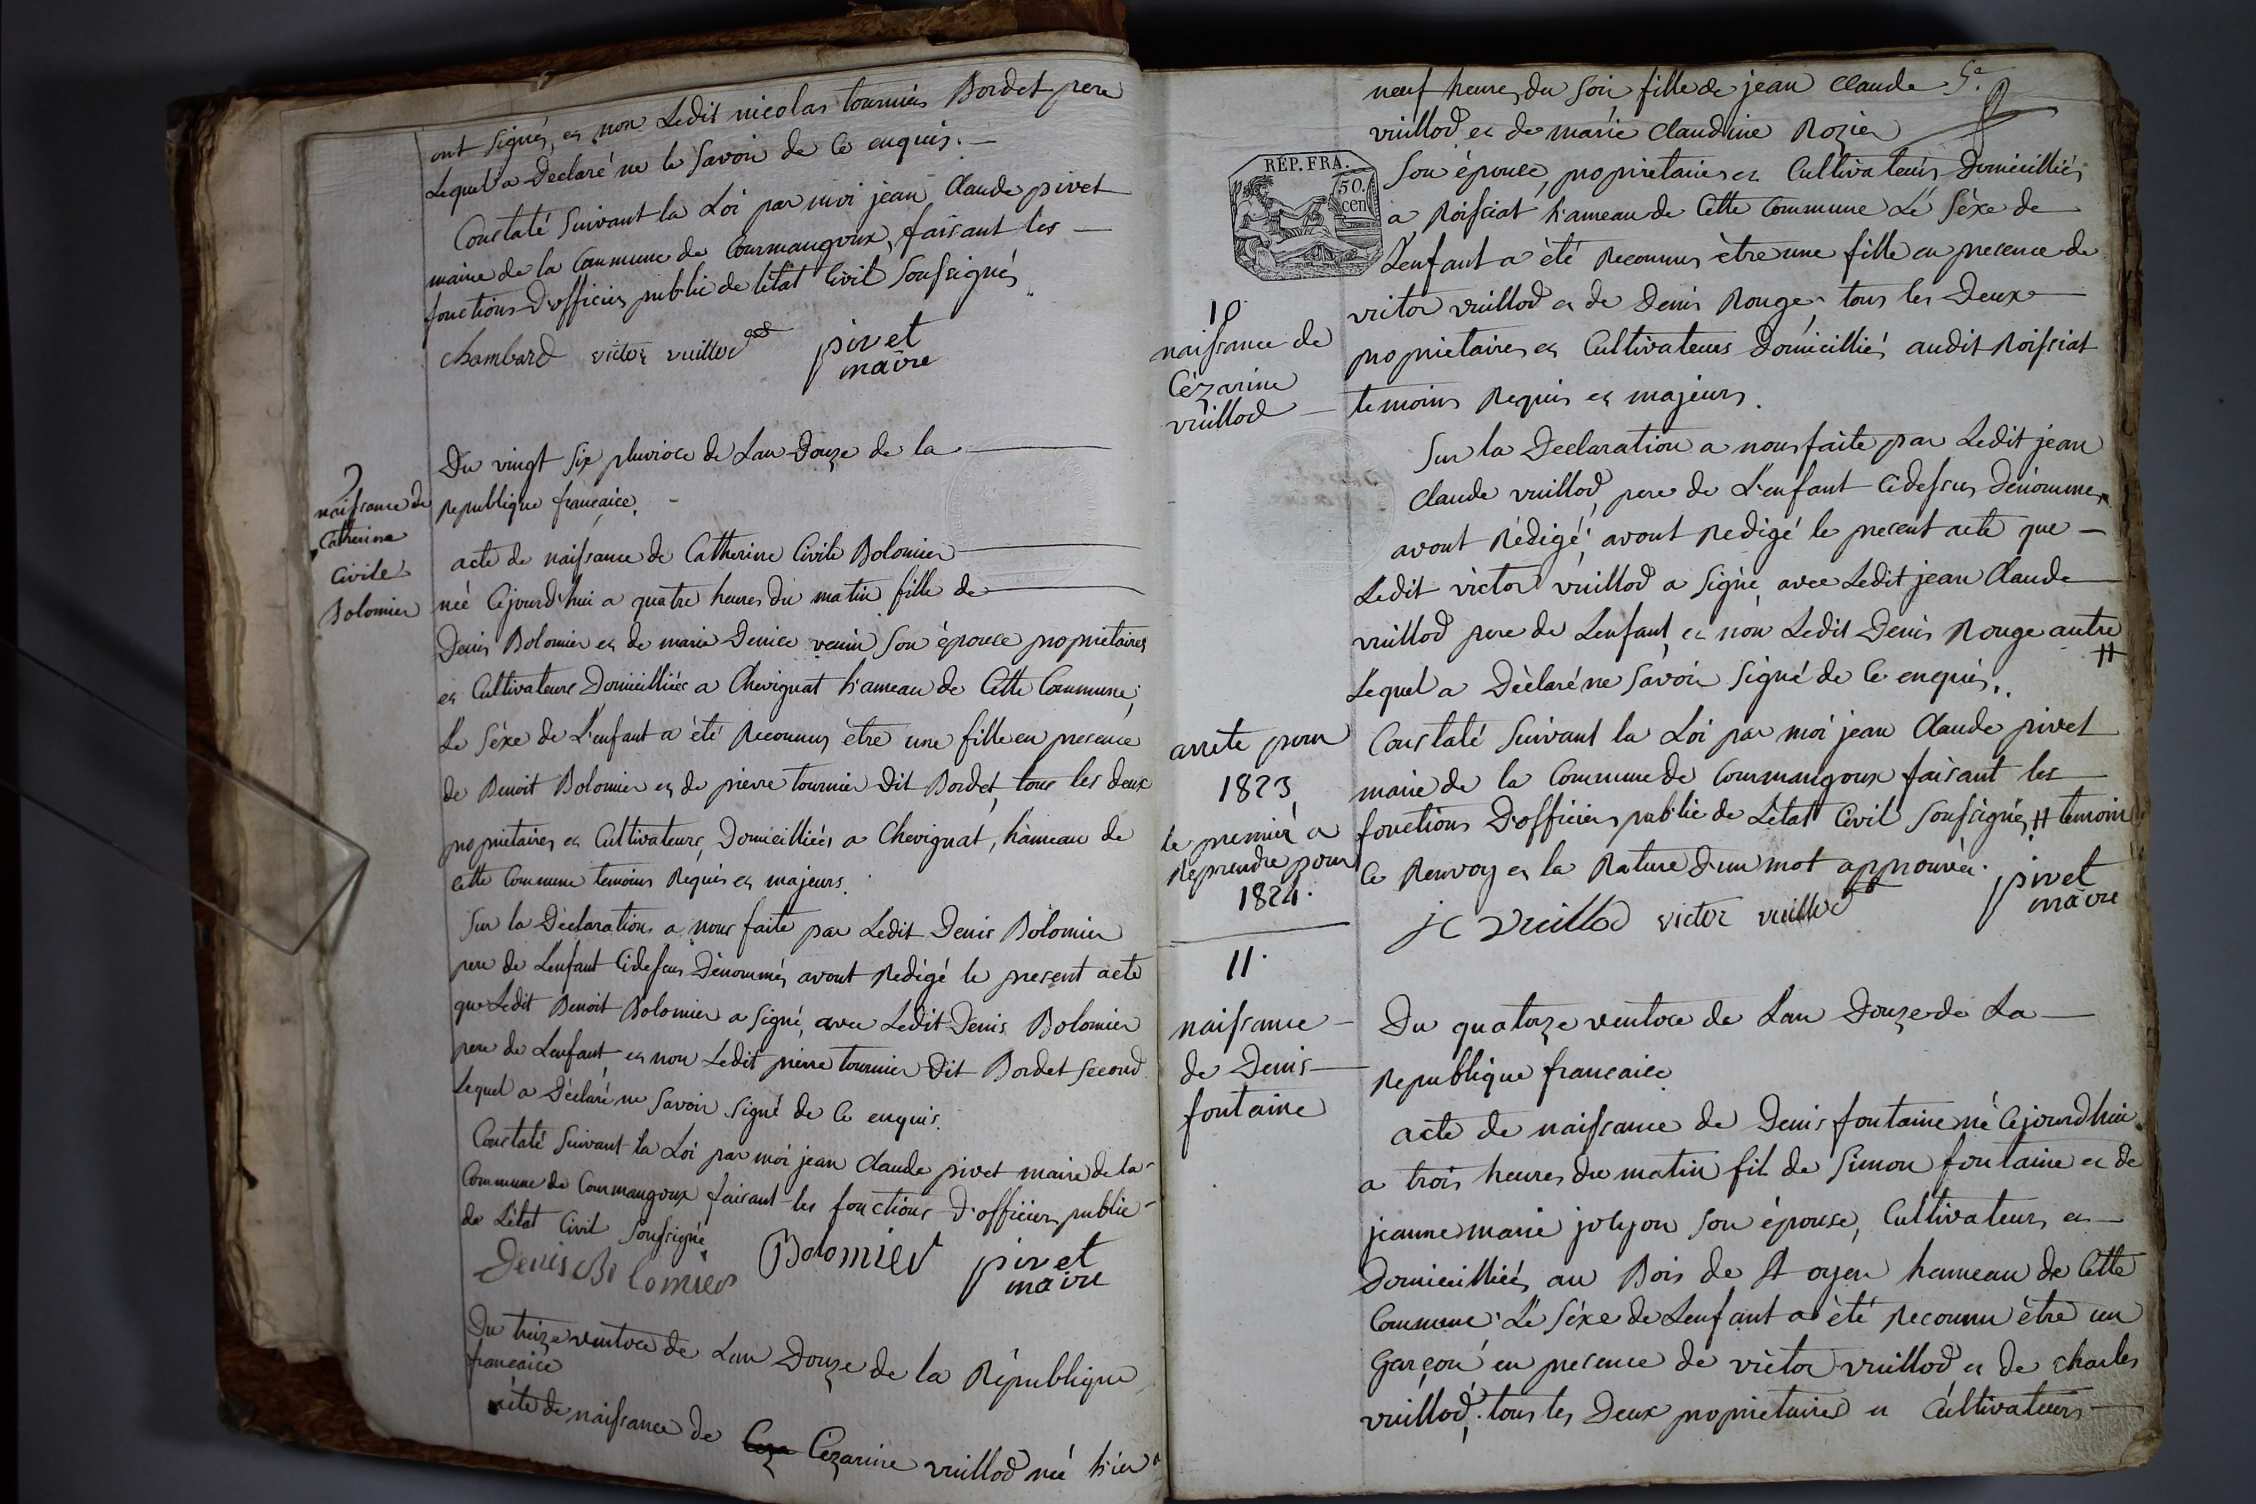 ont Signés, et non Ledit nicolas tournier Bordet pere
Lequel a Declaré ne le Savoir de Ce enquis.
Constaté Suivant la Loi par moi jean Claude pivet
maire de la Commune de Courmangoux, faisant les
fonctions D'officier public de létat Civil Soussignés
chambard victor vuillod pivet
maire
9
naissance de
Catherine
Civile
Bolomier
Du vingt Six pluviose de Lan Douze de la
Republique francaice.
acte de naissance de Catherine Civile Bolomier
née Cejourd'hui a quatre heures du matin fille de
Denis Bolomier et de marie Denice venin Son épouse propriétaires
et Cultivateurs Domicilliés a Chevignat hameau de Cette Commune;
Le Séxe de L'enfant a été Reconnus être une fille en presence
de Benoit Bolomier et de pierre tournier Dit Bordet, tous les deux
propriétaires et Cultivateurs, Domicilliés a Chevignat, hameau de
cette Commune temoins Requis et majeurs.
Sur la Déclaration a nous faite par Ledit Denis Bolomier
pere de L'enfant Cidessus Dénommés avont Redigé le present acte
que Ledit Benoit Bolomier a Signé, avec Ledit Denis Bolomier
pere de Lenfant, et non Ledit pierre tournier Dit Bordet Second
lequel a Déclaré ne Savoir Signé de Ce enquis.
Constaté Suivant la Loi par moi jean Claude pivet maire de la
Commune de Courmangoux faisant les fonctions D'officier public
de L'état Civil Soussigné
Denis Bolomier Bolomier pivet
maire
Du treize ventose de Lan Douze de la République
francaice
acte de naissance de Ceza Cezarine vuillod née hier a
neuf heures du Soir fille de jean Claude
vuillod et de marie Claudine Rozier
REP. FRA.
50.
cen
Son épouse, propriétaires et Cultivateurs Domicilliés
a Roissiat hameau de Cette Commune Le Séxe de
L'enfant a été Reconnus être une fille en presence de
victor vuillod et de Denis Rouge, tous les Deux
propriétaires et Cultivateurs Domicilliés audit Roissiat
temoins Requis et majeurs.
10
naissance de
Cézarine
vuillod
Sur la Declaration a nous faite par Ledit jean
Claude vuillod, pere de L'enfant Cidessus Dénommé
avont Rédigé, avont Redigé le present acte que
Ledit victor vuillod a Signé, avec Ledit jean Claude
vuillod pere de Lenfant, et non Ledit Denis Rouge autre
Lequel a Déclaré ne Savoir Signé de Ce enquis.
Constaté Suivant la Loi par moi jean Claude pivet
maire de la Commune de Courmangoux faisant les
fonctions D'officier public de L'état Civil Soussignés, # temoin
Ce Renvoy et la Rature D'un mot approuvée.
jc vuillod victor vuillod pivet
maire
arrete pour
1823,
le premier a
Reprendre pour
1824.
11.
naissance
de Denis
fontaine
Du quatorze ventose de Lan Douze de La
Republique francaice
acte de naissance de Denis fontaine né Cejourd'hui
a trois heures du matin fil de Simon fontaine et de
jeanne marie jolyon Son épouse, Cultivateurs et
Domicilliés au Bois de St oyen hameau de Cette
Commune. Le Séxe de Lenfant a été Reconnu être un
Garçon en presence de victor vuillod et de charles
vuillod, tous les Deux propriétaires et Cultivateurs